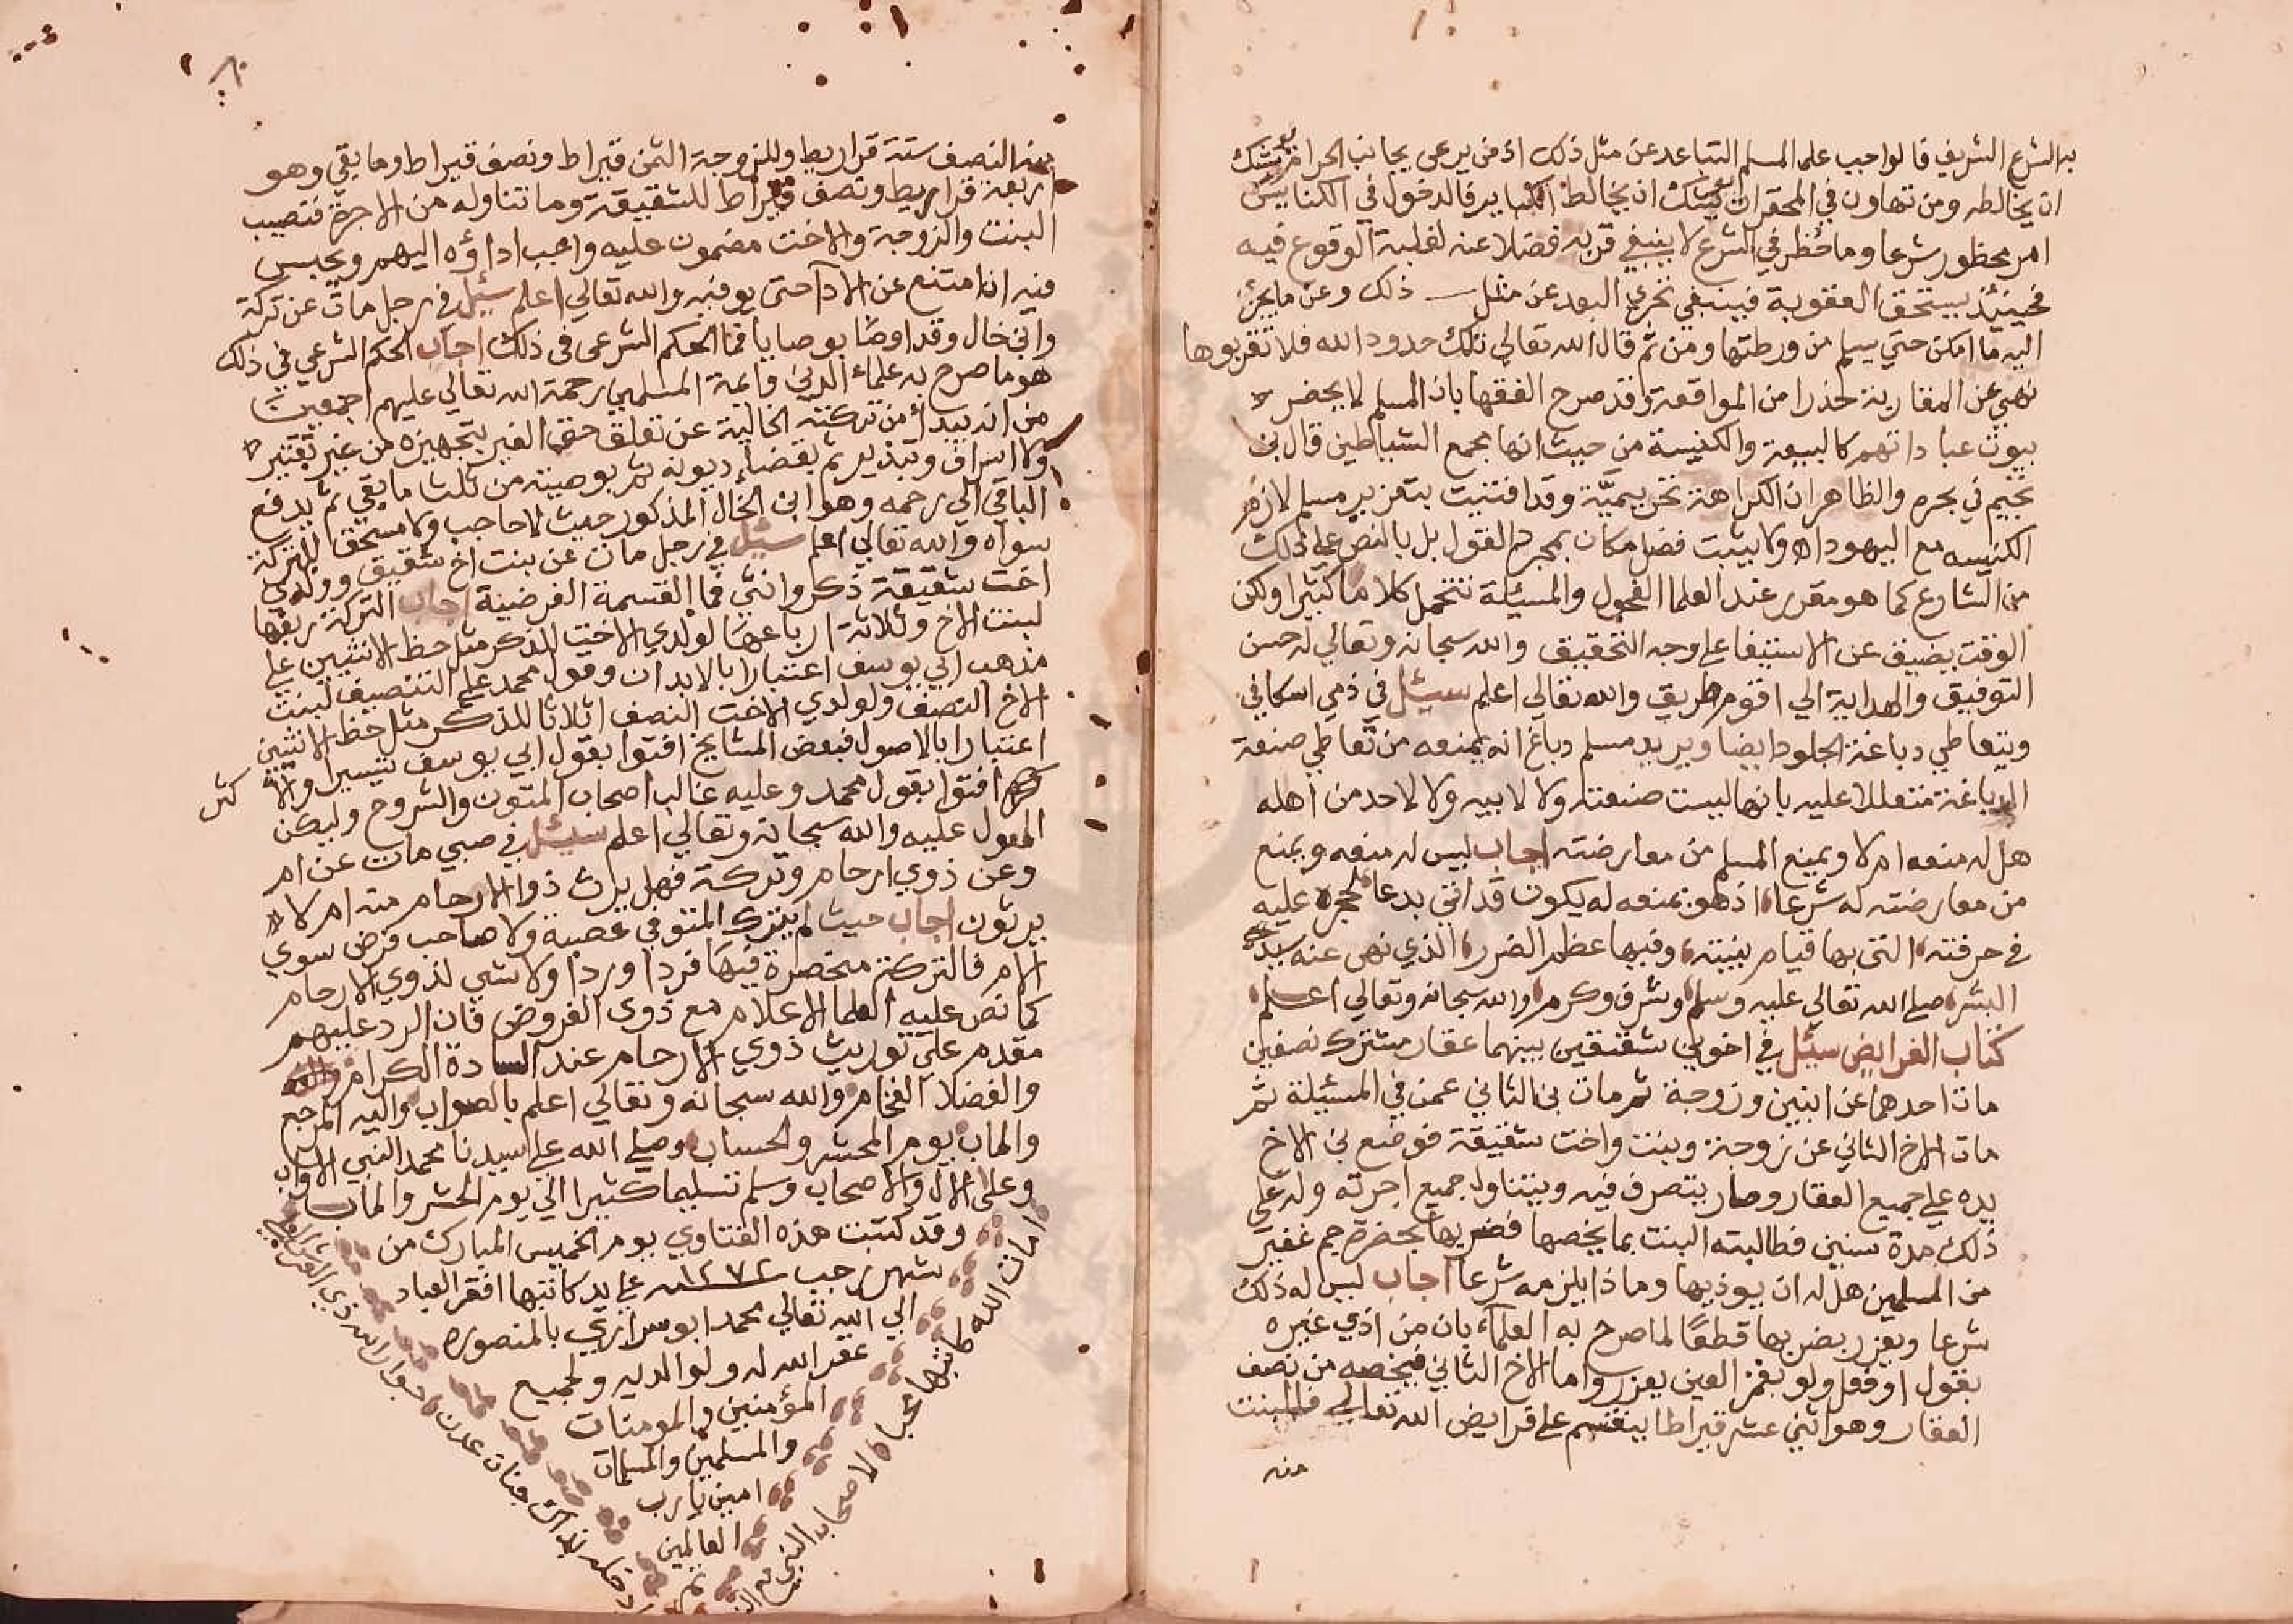 به الشرع الشريف فالواجب علي المسلم التباعد عن مثل ذلك اذ من يرعى بجانب الحرام يوشك
ان يخالطه ومن تهاون في المحقرات يوشك ان يخالط الكباير فالدخول في الكنايس
امر محظور شرعا وما حُظر في الشرع لا ينبغي قربه فضلا عنه لغلبة الوقوع فيه
فحينئذ يستحق العقوبة فينبغي تحري البعد عن مثل ذلك وعن ما يجرّ
اليه ما امكن حتي يسلم من ورطتها ومن ثم قال الله تعالي تلك حدود الله فلا تقربوها
نهي عن المقاربة حذرا من المواقعة وقد صرح الفقها بان المسلم لا يحضر
بيوت عباداتهم كالبيعة والكنيسة من حيث انها مجمع الشياطين قال بن
نجيم في بحره والظاهر ان الكراهة تحريميَّة وقد افتيت بتعزير مسلم لازم
الكنيسه مع اليهود اه ولا يثبت فضل مكان بمجرد القول بل بالنص علي ذلك
من الشارع كما هو مقرر عند العلما الفحول والمسئلة تتحمل كلاما كثيرا ولكن
الوقت يضيق عن الاستيفا علي وجه التحقيق والله سبحانه وتعالي له حسن
التوفيق والهداية الي اقوم طريق والله تعالي اعلم سيئل في ذمي اسكافي
ويتعاطي دباغة الجلود ايضا ويريد مسلم دباغ انه يمنعه من تعاطي صنعة
الدباغة متعللا عليه بانها ليست صنعته ولا لابيه ولا لاحد من اهله
هل له منعه ام لا ويمنع المسلم من معارضته اجاب ليس له منعه ويمنع
من معارضته له شرعا اذ هو بمنعه له يكون قد اتي بدعا لحجره عليه
في حرفته التي بها قيام بنيته وفيها عظم الضرر الذي نهى عنه سيد
البشر صلي الله تعالي عليه وسلم وشرف وكرم والله سبحانه وتعالي اعلم
كتاب الفرايض سئيل في اخوين شقيقين بينهما عقار مشترك نصفين
مات احدهما عن ابنين وزوجة ثم مات بن الثاني عمن في المسئيلة ثم
مات الاخ الثاني عن زوجة وبنت واخت شقيقة فوضع بن الاخ
يده علي جميع العقار وصار يتصرف فيه ويتناول جميع اجرته وله علي
ذلك مدة سنين فطالبته البنت بما يخصها فضربها بحضرة جم غفير
من المسلمين هل له ان يوذيها وما ذا يلزمه شرعا اجاب ليس له ذلك
شرعا ويعزر بضربها قطعًا لما صرح به العلماء بان من اذي غيره
بقول او فعل ولو بغمز العين يعزر واما الاخ الثاني فيخصه من نصف
العقار وهو اثني عشر قيراطا يبنقسم علي فرايض الله تعالي فللبنت
منه
منه النصف ستة قراريط وللزوجة الثمن قيراط ونصف قيراط وما بقي وهو
اربعة قراريط ونصف قيراط للشقيقة وما تناوله من الاجرة فنصيب
البنت والزوجة والاخت مضمون عليه واجب اداؤه اليهم ويحبس
فيه ان امتنع عن الادآ حتى يوفيه والله تعالي اعلم سيئل في رجل مات عن تركة
وابن خال وقد اوصا بوصايا فما الحكم الشرعي في ذلك اجاب الحكم الشرعي في ذلك
هو ما صرح به علماء الدين وايمة المسلمين رحمة الله تعالي عليهم اجمعين
من انه يبدأ من تركته الخالية عن تعلق حق الغير بتجهيزه من غير تقتير
ولا اسراف وتبذير ثم بقضاء ديونه ثم بوصيته من ثلث ما بقي ثم يدفع
الباقي الي رحمه وهو ابن الخال المذكور حيث لا حاجب ولا مستحق للتركة
سواه والله تعالي اعلم سيئل في رجل مات عن بنت اخ شقيق وولدي
اخت شقيقة ذكر وانثي فما القسمة الفرضية اجاب التركة ربعها
لبنت الاخ وثلاثة ارباعها لولدي الاخت للذكر مثل حظ الانثيين علي
مذهب ابي يوسف اعتبارا بالابدان وقول محمد علي التنصيف لبنت
الاخ النصف ولولدي الاخت النصف اثلاثا للذكر مثل حظ الانثيين
اعتبارا بالاصول فبعض المشايخ افتوا بقول ابي يوسف تيسيرا والاكثر
افتوا بقول محمد وعليه غالب اصحاب المتون والشروح وليكن
المعول عليه والله سبحانه وتعالي اعلم سيئل في صبي مات عن ام
وعن ذوي ارحام وتركة فهل يرث ذوا الارحام منه ام لا
يرثون اجاب حيث لم يترك المتوفي عصبة ولا صاحب فرض سوي
الام فالتركة منحصرة فيها فردا وردا ولا شي لذوي الارحام
كما نص عليه العلما الاعلام مع ذوي الفروض فان الرد عليهم
مقدم علي توريث ذوي الارحام عند السادة الكرام
والفضلا الفخام والله سبحانه وتعالي اعلم بالصواب واليه المرجع
والماب يوم المحشر والحساب وصلي الله علي سيدنا محمد النبي الاواب
وعلى الال والاصحاب وسلم تسليما كثيرا الي يوم الحشر والماب
وقد كتبت هذه الفتاوي يوم الخميس المبارك من
شهر رجب ١٢٧٢ علي يد كاتبها افقر العباد
الي الله تعالي محمد ابو سرازي بالمنصوره
غفر الله له ولوالديه ولجميع
المؤمنين والمومنات
والمسلمين والمسلمات
امين يارب
العالمين
تم
امات الله كاتبها محبا والاصحاب النبي
جنات عدن جوار الله ذي العرش